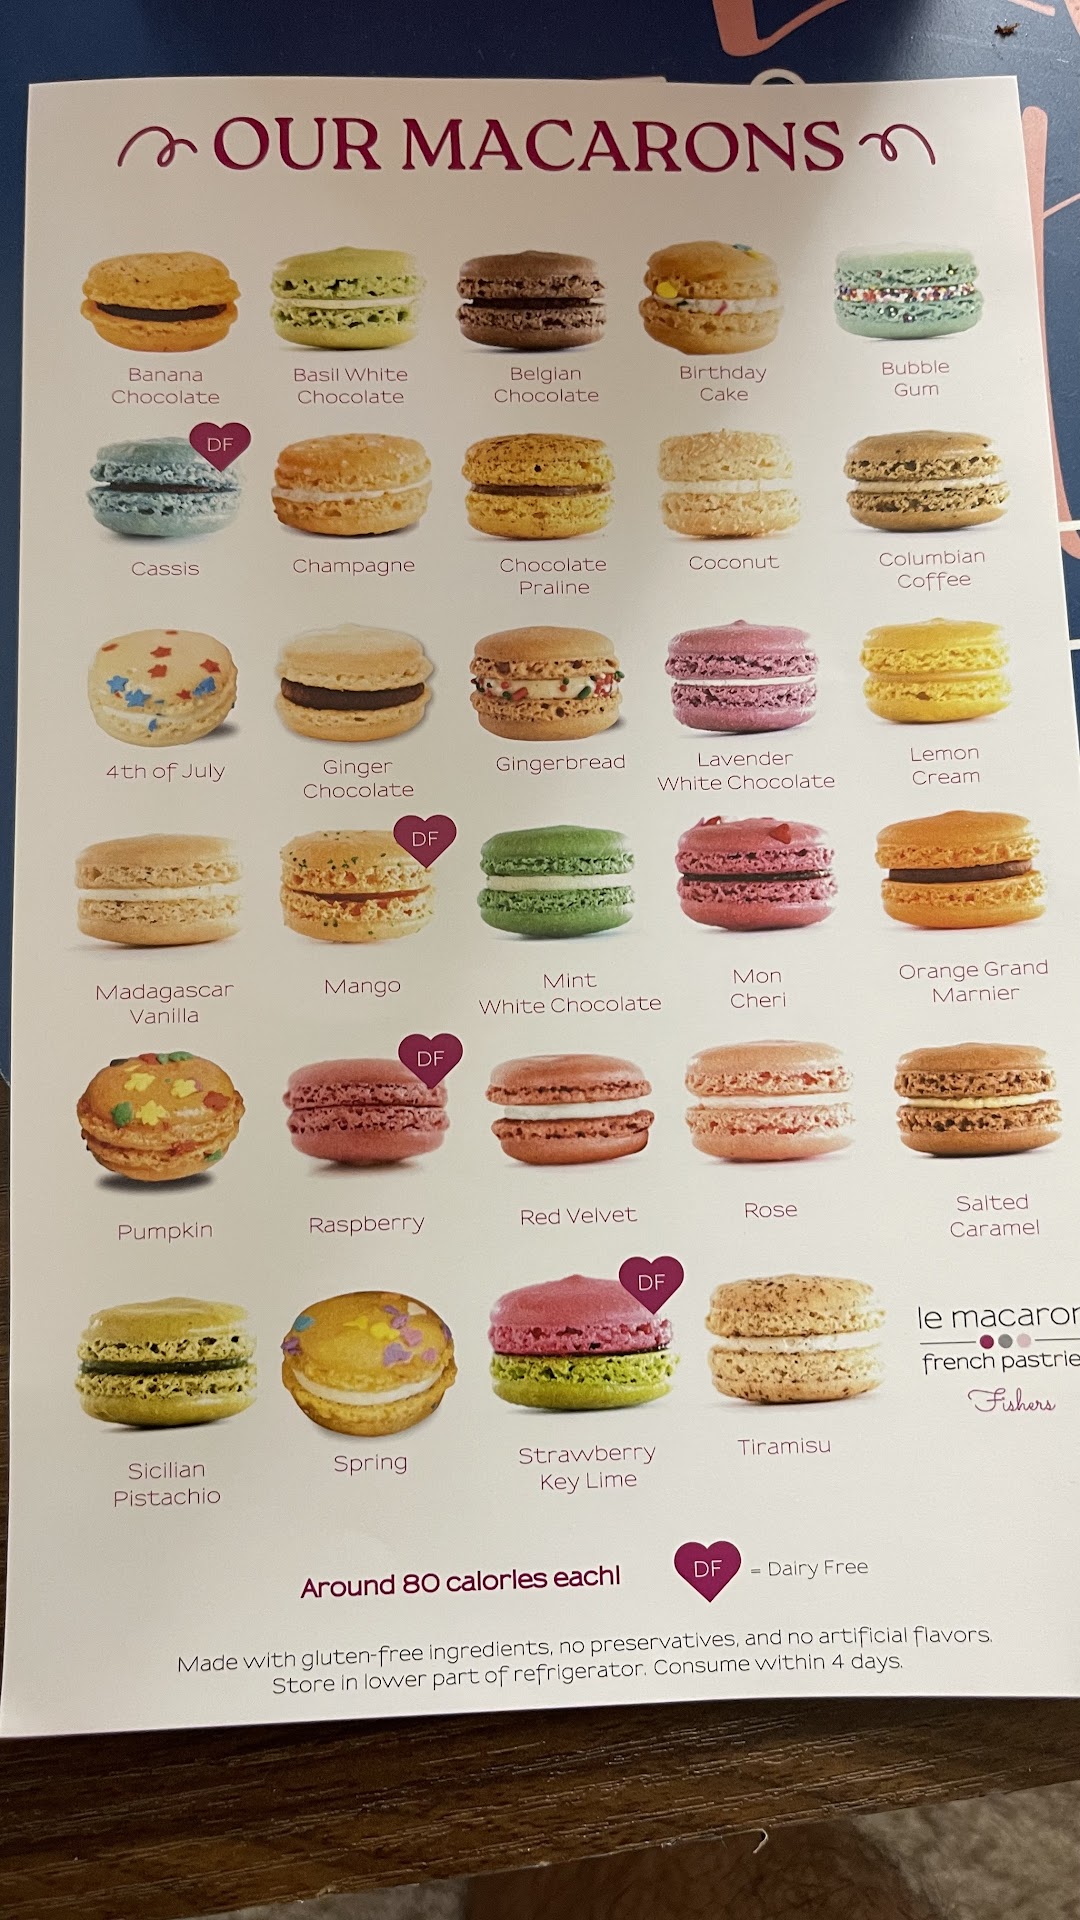 OUR MACARONS
Banana
Chocolate
Basil White
Chocolate
Belgian
Chocolate
Birthday
Cake
Bubble
Gum
DF
Cassis
Champagne
Chocolate
Praline
Coconut
Columbian
Coffee
4th of July
Ginger
Chocolate
Gingerbread
Lavender
White Chocolate
Lemon
Cream
Madagascar
Vanilla
DF
Mango
Mint
White Chocolate
Mon
Cheri
Orange Grand
Marnier
Pumpkin
DF
Raspberry
Red Velvet
Rose
Salted
Caramel
Sicilian
Pistachio
Spring
DF
Strawberry
Key Lime
Tiramisu
le macaron
french pastrie
Fishers
Around 80 calories each!
DF = Dairy Free
Made with gluten-free ingredients, no preservatives, and no artificial flavors.
Store in lower part of refrigerator. Consume within 4 days.